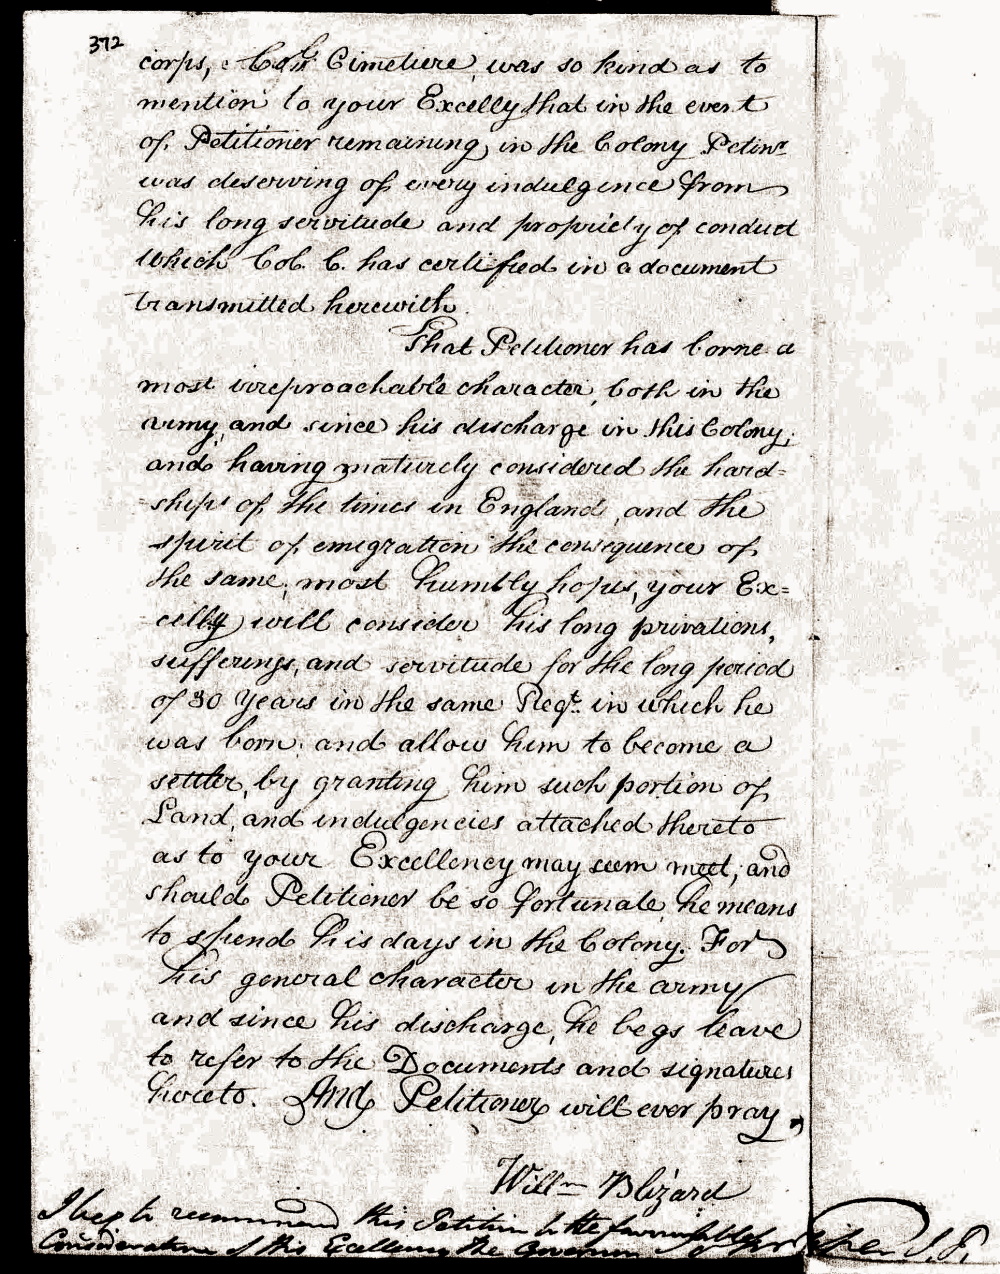 372
corps, Col. Cimetiere, was so kind as to
mention to your Excelly that in the event
of Petitioner remaining in the Colony Petinr
was deserving of every indulgence from
his long servitude and propriety of conduct
which Col. C. has certified in a document
transmitted herewith.
That Petitioner has borne a
most irreproachable character, both in the
army and since his discharge in this Colony;
and having maturely considered the hard=
=ships of the times in England, and the
spirit of emigration the consequence of
the same, most humbly hopes, your Ex=
=celly will consider his long privations,
sufferings, and servitude for the long period
of 30 years in the same Regt. in which he
was born, and allow him to become a
settler, by granting him such portion of
Land, and indulgencies attached thereto
as to your Excellency may seem meet, and
should Petitioner be so fortunate, he means
to spend his days in the Colony. For
his general character in the army
and since his discharge, he begs leave
to refer to the Documents and signatures
hereto. And Petitioner will ever pray,
Willm Blizard
I beg to recommend this Petition to the favourable
Consideration of His Excellency the Governor J.P.